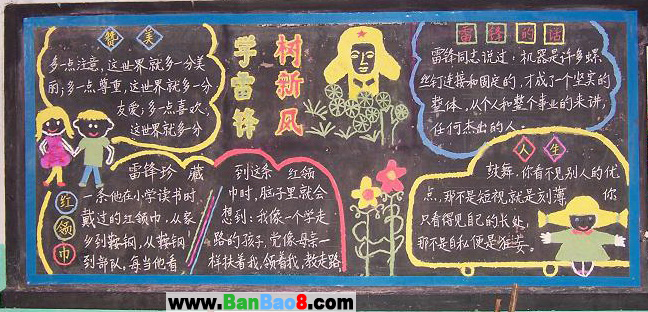 赞美
多一点注意,这世界就多一分美
丽;多一点尊重,这世界就多一分
友爱;多一点喜欢,
这世界就多一分
学雷锋
树新风
雷锋的话
雷锋同志说过:机器是许多螺
丝钉连接和固定的,才成了一个坚实的
整体,从个人和整个事业的来讲,
任何杰出的人.
红领巾
雷锋珍藏
一条他在小学读书时
戴过的红领巾,从家
乡到鞍钢,从鞍钢
到部队,每当他看
到这条红领
巾时,脑子里就会
想到:我像一个学走
路的孩子,党像母亲一
样扶着我,领着我,教走路
人生
鼓舞,你看不见别人的优
点,那不是短视就是刻薄,你
只看得见自己的长处,
那不是自私便是狂妄。
www.BanBao8.com